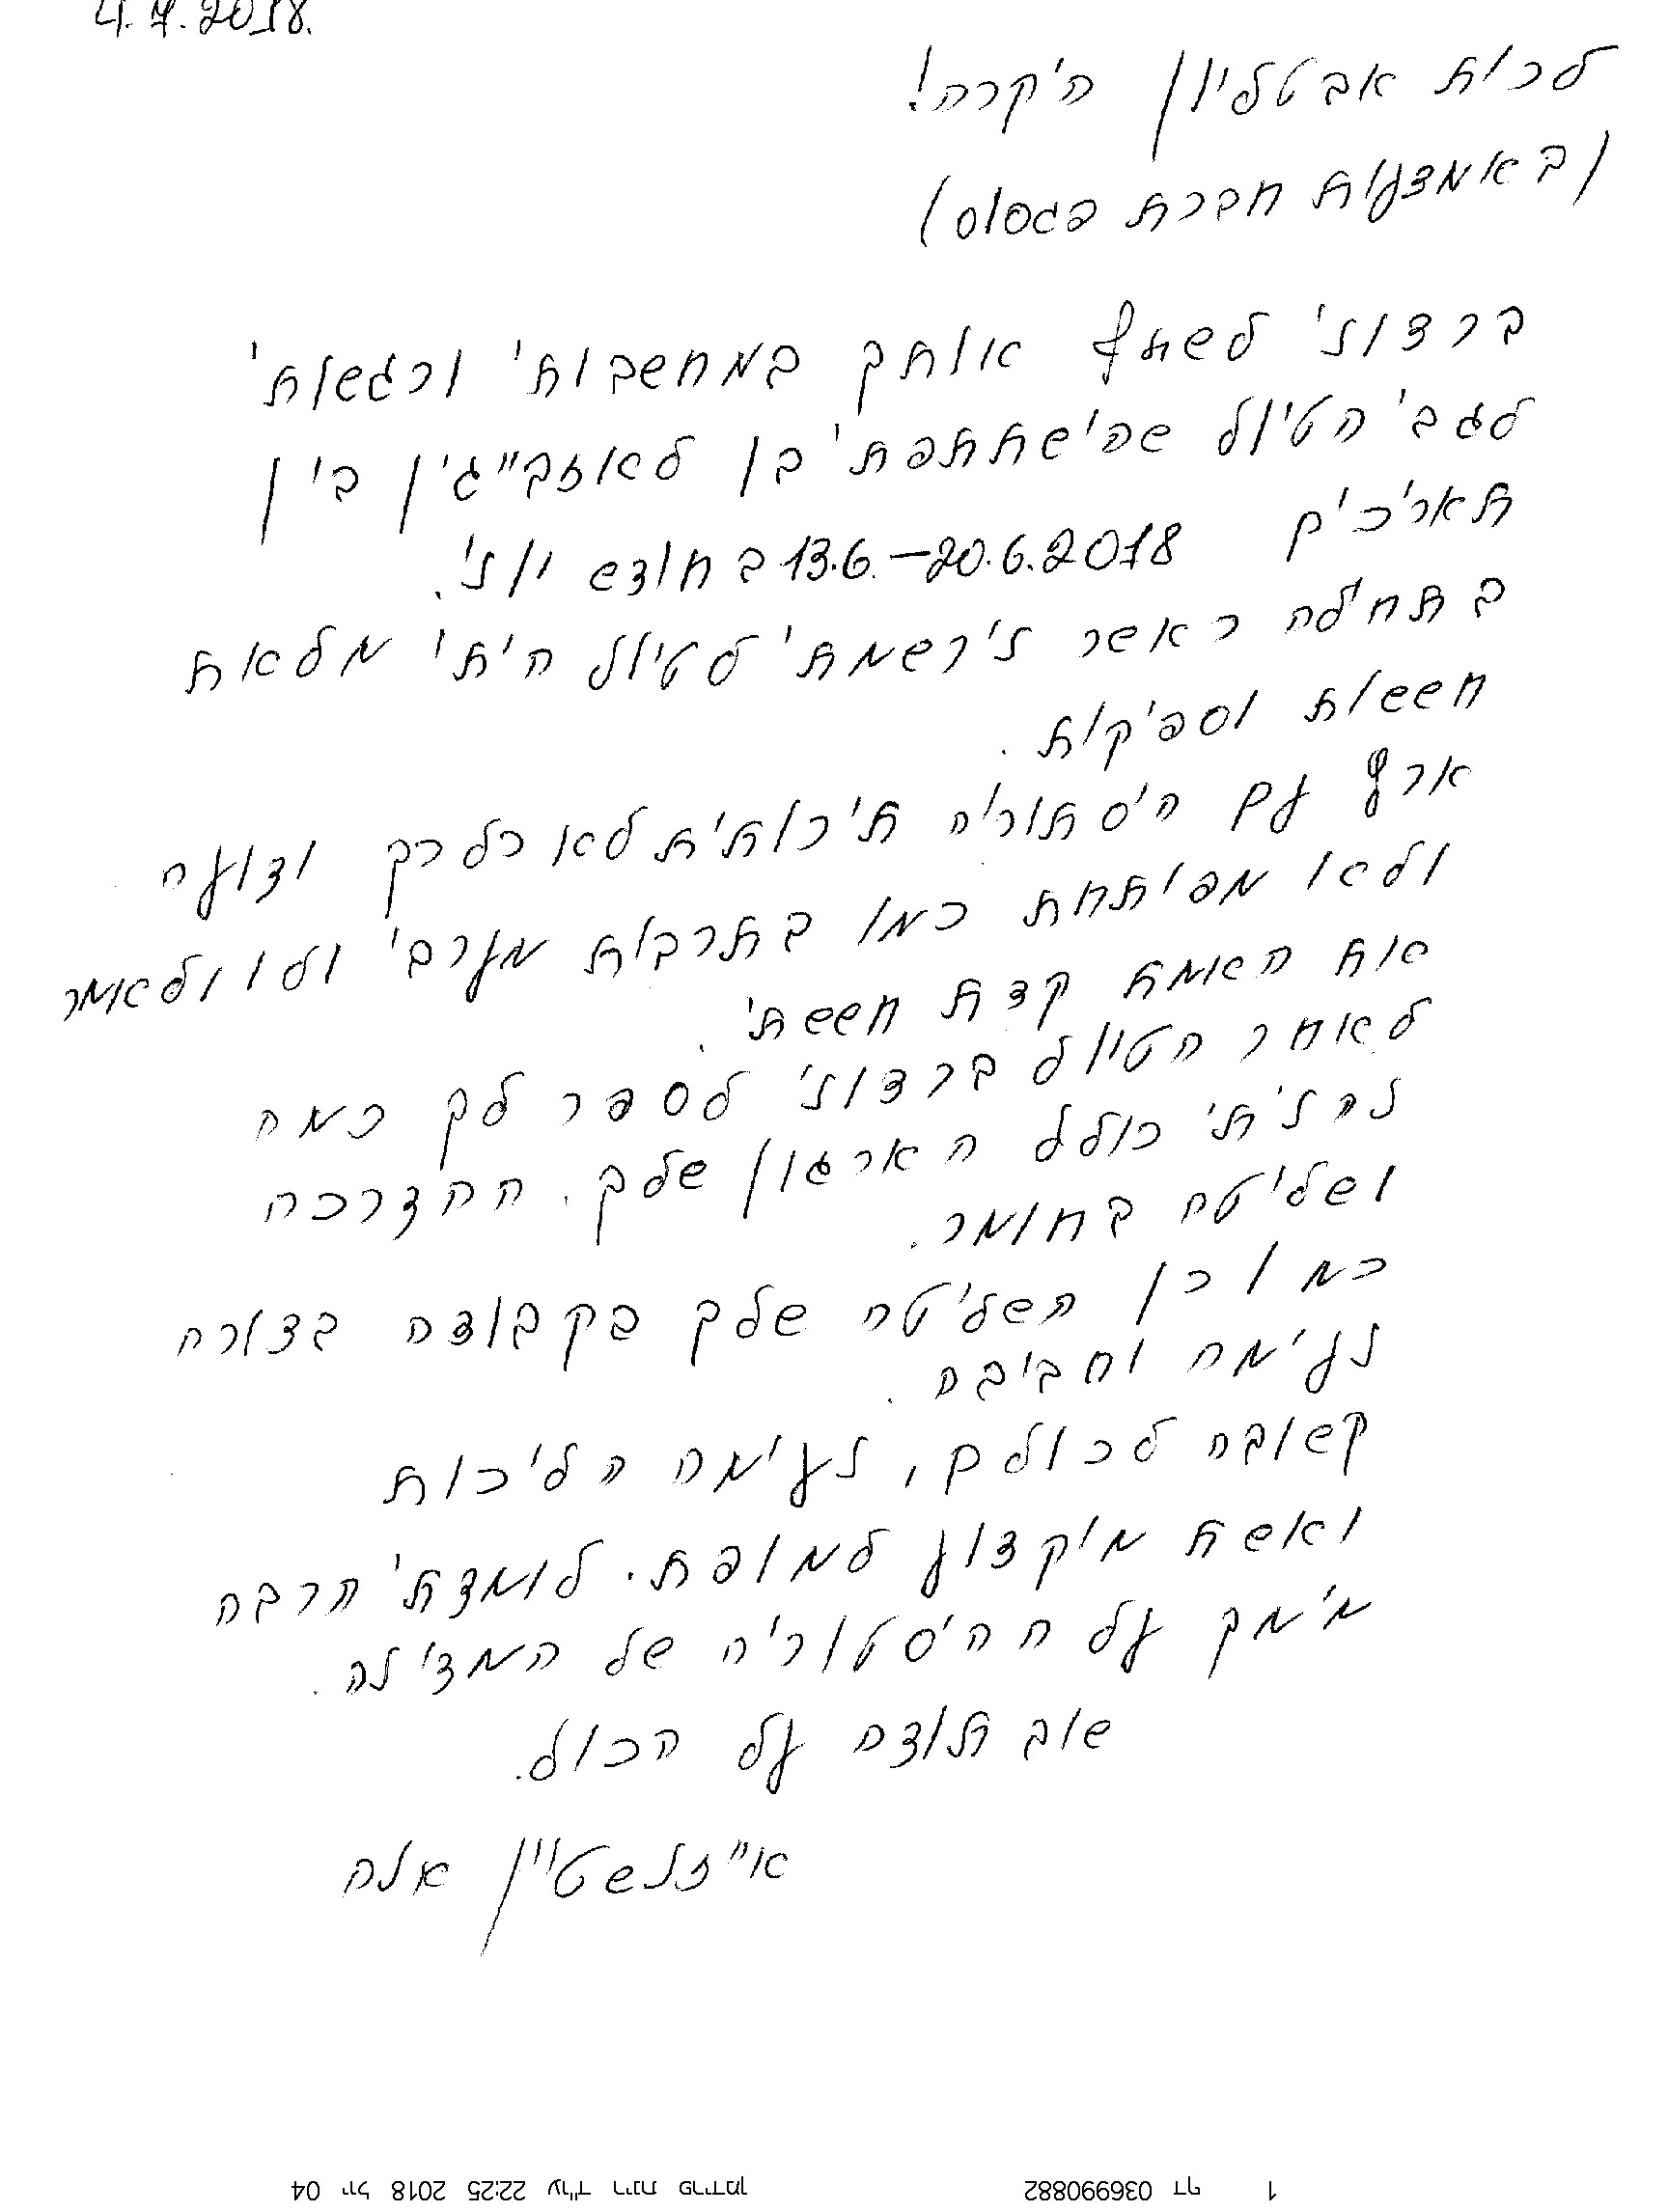 4.7.2018.
לכות אבטליון היקרה!
(באמצעות חברת פגסוס)
ברצוני לשתף אותך במחשבותי ורגשותי
לגבי הטיול שהישתתפתי בו לאזבייג'ין בין
תאריכים 13.6.–20.6.2018 בחודש יוני.
בתחילה כאשר נירשמתי לטיול הייתי מלאת
חששות וספיקות.
ארץ עם היסתוריה תיכותית לא כל כך ידועה
ולא מפותחת כמו בתרבות מערבי ולו ולאמר
את האמת קצת חששתי.
לאחר הטיול ברצוני לספר לך כמה
נהניתי כולל הארגון שלך. ההדרכה
ושליטה בחומר.
כמו כן השליטה שלך בקבוצה בצורה
נעימה וחביבה.
קשובה לכולם, נעימה הליכות
ואשת מיקצוע למופת. לומדתי הרבה
מימך על ההיסטוריה של המדינה.
שוב תודה על הכול.
אייזנשטיין אלה
04 יול 2018 22:25 עו"ד רינת פרידמן 036990882 דף 1